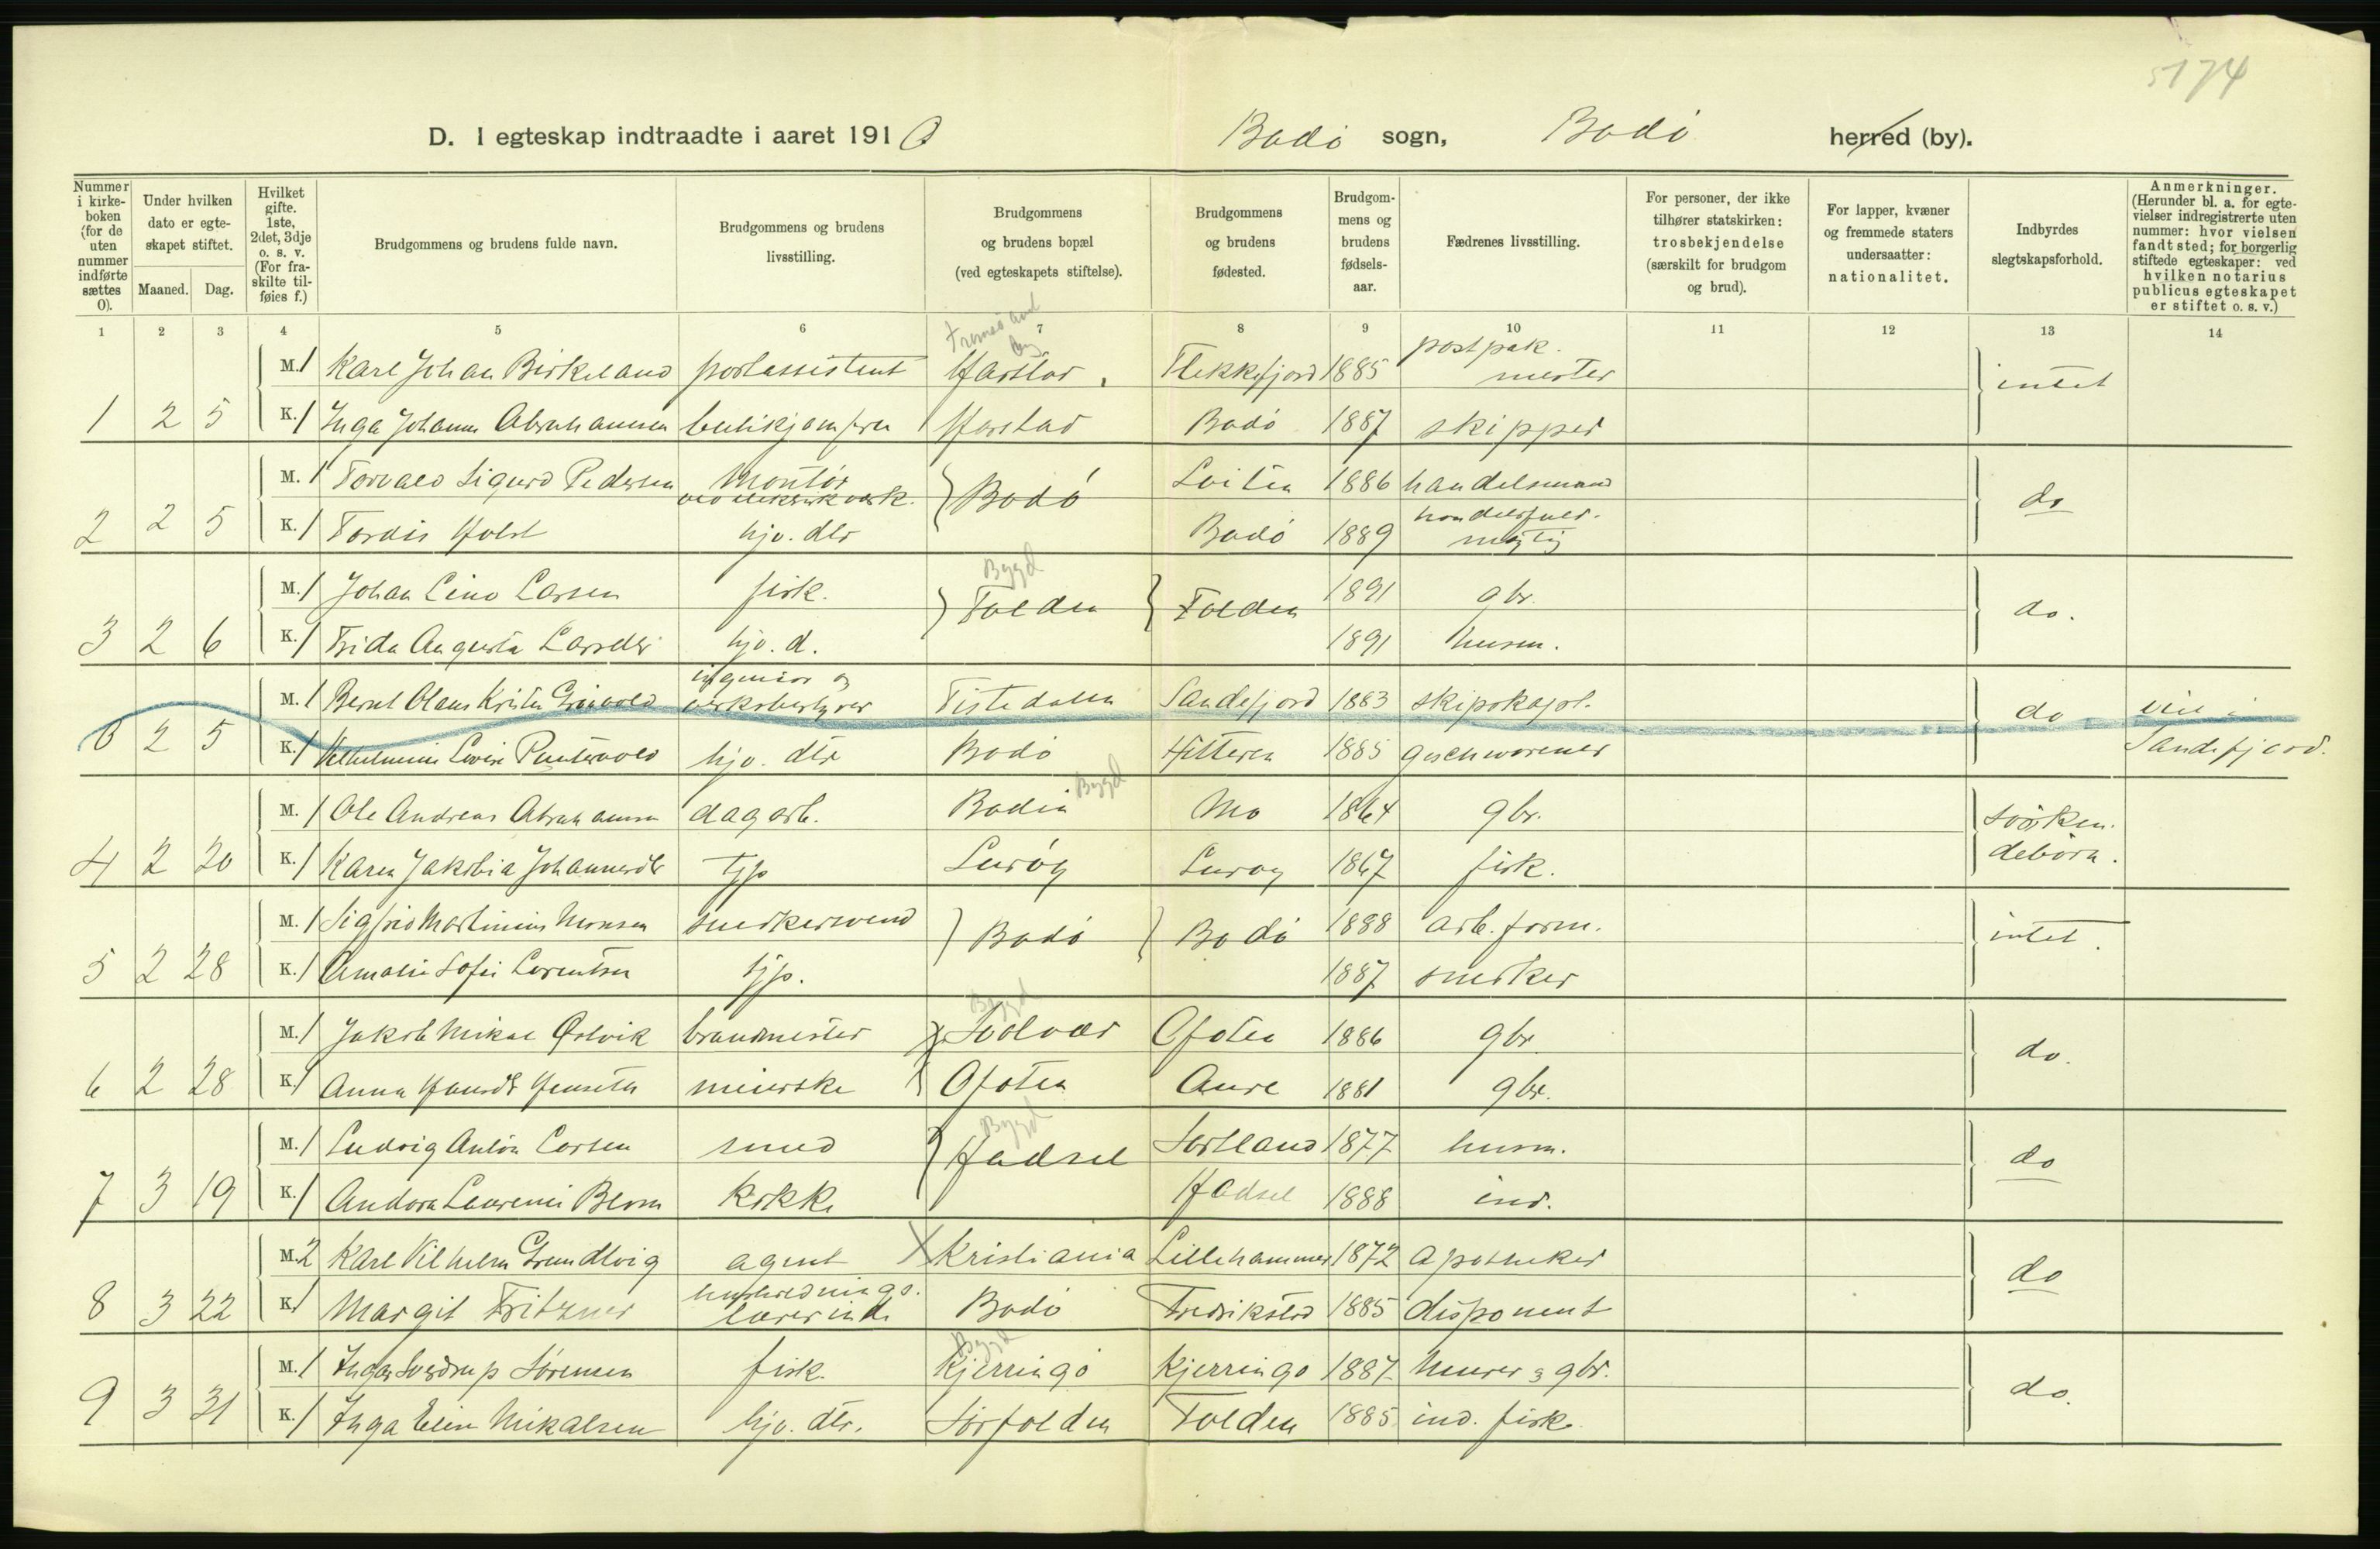 5174
D. I egteskap indtraadte i aaret 1910 Bodø sogn, Bodø herred (by).
Nummer i kirkeboken (for de uten nummer indførte sættes 0).
Under hvilken dato er egteskapet stiftet.
Maaned. Dag.
Hvilket gifte. 1ste, 2det, 3dje o. s. v. (For fraskilte tilføies f.)
Brudgommens og brudens fulde navn.
Brudgommens og brudens livsstilling.
Brudgommens og brudens bopæl (ved egteskapets stiftelse).
Brudgommens og brudens fødested.
Brudgommens og brudens fødselsaar.
Fædrenes livsstilling.
For personer, der ikke tilhører statskirken: trosbekjendelse (særskilt for brudgom og brud).
For lapper, kvæner og fremmede staters undersaatter: nationalitet.
Indbyrdes slegtskapsforhold.
Anmerkninger. (Herunder bl. a. for egtevielser indregistrerte uten nummer: hvor vielsen fandt sted; for borgerlig stiftede egteskaper: ved hvilken notarius publicus egteskapet er stiftet o. s. v.)
1 2 3 4 5 6 7 8 9 10 11 12 13 14
M. 1 Karl Johan Birkeland postassistent Harstad Flekkefjord 1885 postpak. mester intet
1 2 5 K. 1 Inga Johanne Abrahamsen butikjomfru Harstad Bodø 1887 skipper
M. 1 Torvald Sigurd Pedersen Montør ved elektrik værk. Bodø Løiten 1886 handelsmand do
2 2 5 K. 1 Tordis Holst hjv. dtr Bodø 1889 handelsfuld. mægtig
Bygd
M. 1 Johan Lino Larsen fisk. Folden Folden 1891 gbr. do.
3 2 6 K. 1 Frida Augusta Larsdtr hjv. d. 1891 husm.
M. 1 Bernt Olaus Kristen Grønvold ingeniør og verksbestyrer Tistedalen Sandefjord 1883 skipskapt. do viet i
0 2 5 K. 1 Vilhelmine Lovise Pentervold hjv. dtr Bodø Hitteren 1885 geschworener Sandefjord.
M. 1 Ole Andreas Abrahamsen dagarb. Bodin Bygd Mo 1864 gbr. søsken.
4 2 20 K. 1 Karen Jakobia Johannesdtr tjp Lurøy Lurøy 1867 fisk. debørn.
M. 1 Sigfrid Martinius Monsen snedkersvend Bodø Bodø 1888 arb. form. intet.
5 2 28 K. 1 Amalie Sofie Lorentsen tjp. 1887 snedker
Bygd
M. 1 Jakob Mikal Østvik brandmester Svolvær Ofoten 1886 gbr. do.
6 2 28 K. 1 Anna Hansdt Henseth meierske Ofoten Aure 1881 gbr.
Bygd
M. 1 Ludvig Anton Larsen smed Hadsel Sortland 1877 husm. do
7 3 19 K. 1 Andora Laurense Blom kokke Hadsel 1888 ind.
M. 2 Karl Vilhelm Grundtvig agent Kristiania Lillehammer 1872 apotheker do
8 3 22 K. 1 Margit Fritzner husholdnings. lærerinde Bodø Fredriksted 1885 disponent
Bygd
M. 1 Ingar Sverdrup Sørensen fisk. Kjerringø Kjerringø 1887 murer & gbr. do.
9 3 31 K. 1 Inga Eline Mikalsen hjv. dtr. Sørfolden Folden 1885 ind. fisk.